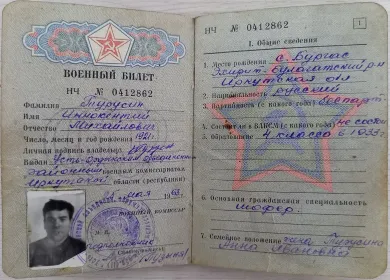 ВОЕННЫЙ БИЛЕТ
НЧ № 0412862
Фамилия Турусин
Имя Иннокентий
Отчество Михайлович
Число, месяц и год рождения 1921
Личная подпись владельца
Выдан Усть-Ордынским объединенным
районным военным комиссариатом
Иркутской области (республики)
мая 1963
НЧ № 0412862
1
I. Общие сведения
1. Место рождения с. Бургас
Эхирит-Булагатский р-н
Иркутская обл
2. Национальность русский
3. Партийность (с какого года) беспарт
4. Состоит ли в ВЛКСМ (с какого года) не состоит
5. Образование 4 класса в 1935
6. Основная гражданская специальность
шофер.
7. Семейное положение жена Турусина
Анна Ивановна